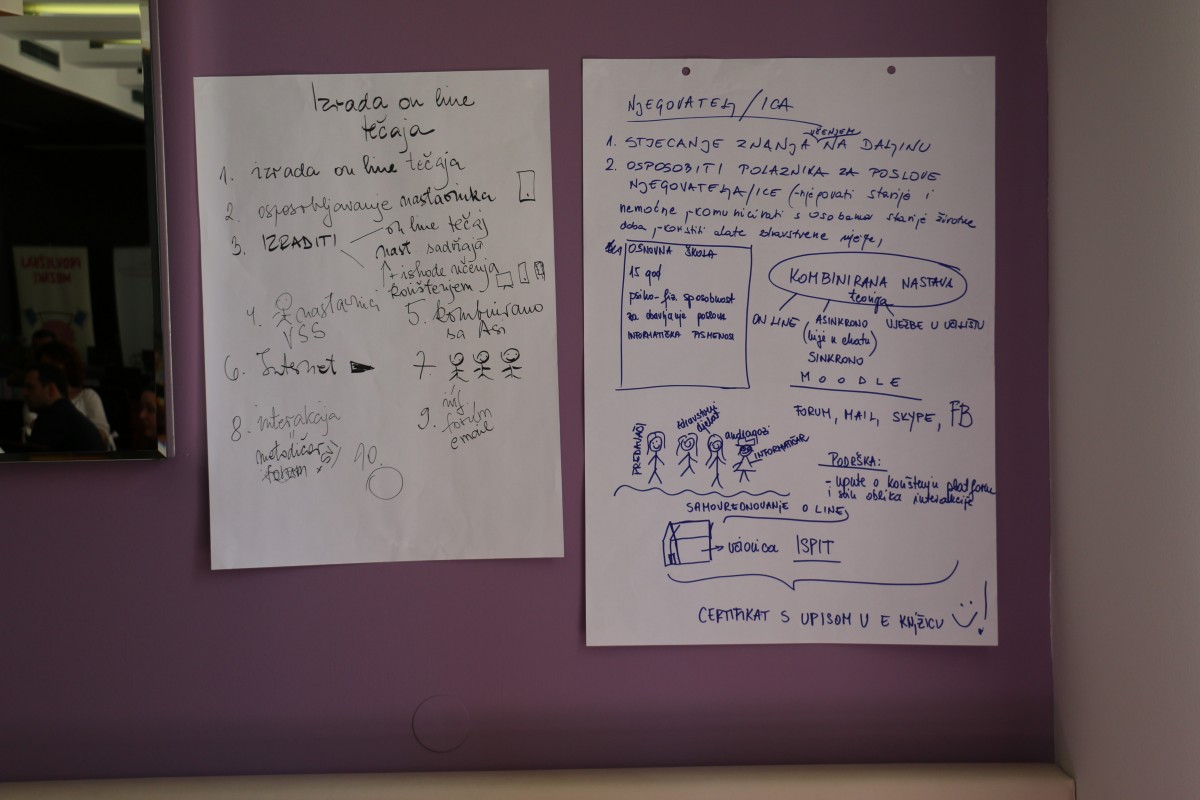 Izrada on line
tečaja
1. izrada on line tečaja
2. osposobljavanje nastavnika
3. IZRADITI
on line tečaj
nast sadržaja
+ ishode učenja
korištenjem
4. nastavnici
VSS
5. kombinirano
sa
6. Internet
7.
8. interakcija
forum
9.
forum
email
10.
NJEGOVATELJ/ICA
UČENJEM
1. STJECANJE ZNANJA NA DALJINU
2. OSPOSOBITI POLAZNIKA ZA POSLOVE
NJEGOVATELJA/ICE (-njegovati starije i
nemoćne, -komunicirati s osobama starije životne
doba, -koristiti alate zdravstvene njege,
OSNOVNA ŠKOLA
15 god
psiho-fiz sposobnost
za obavljanje poslova
INFORMATIČKA PISMENOST
KOMBINIRANA NASTAVA
teorija
ON LINE
ASINKRONO
(nije u chatu)
SINKRONO
VJEŽBE U UČILIŠTU
MOODLE
FORUM, MAIL, SKYPE, FB
PREDAVAČI
zdravstveni
djelat
andragozi
INFORMATIČAR
PODRŠKA:
- upute o korištenju platforme
i svih oblika interakcije
SAMOVREDNOVANJE O LINE
učionica ISPIT
CERTIFIKAT S UPISOM U E KNJIŽICU !